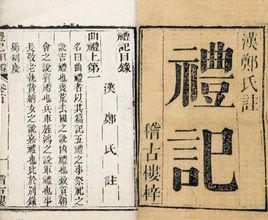 漢鄭氏註
禮記
稽古樓梓
禮記目錄
漢 鄭氏註
曲禮上第一
名曰曲禮者以其篇記五禮之事祭祀之
說吉禮也喪荒去國之說凶禮也致貢朝
會之說賓禮也兵車旌鴻之說軍禮也事
長敬老執贄納女之說嘉禮也此於別錄
屬制度